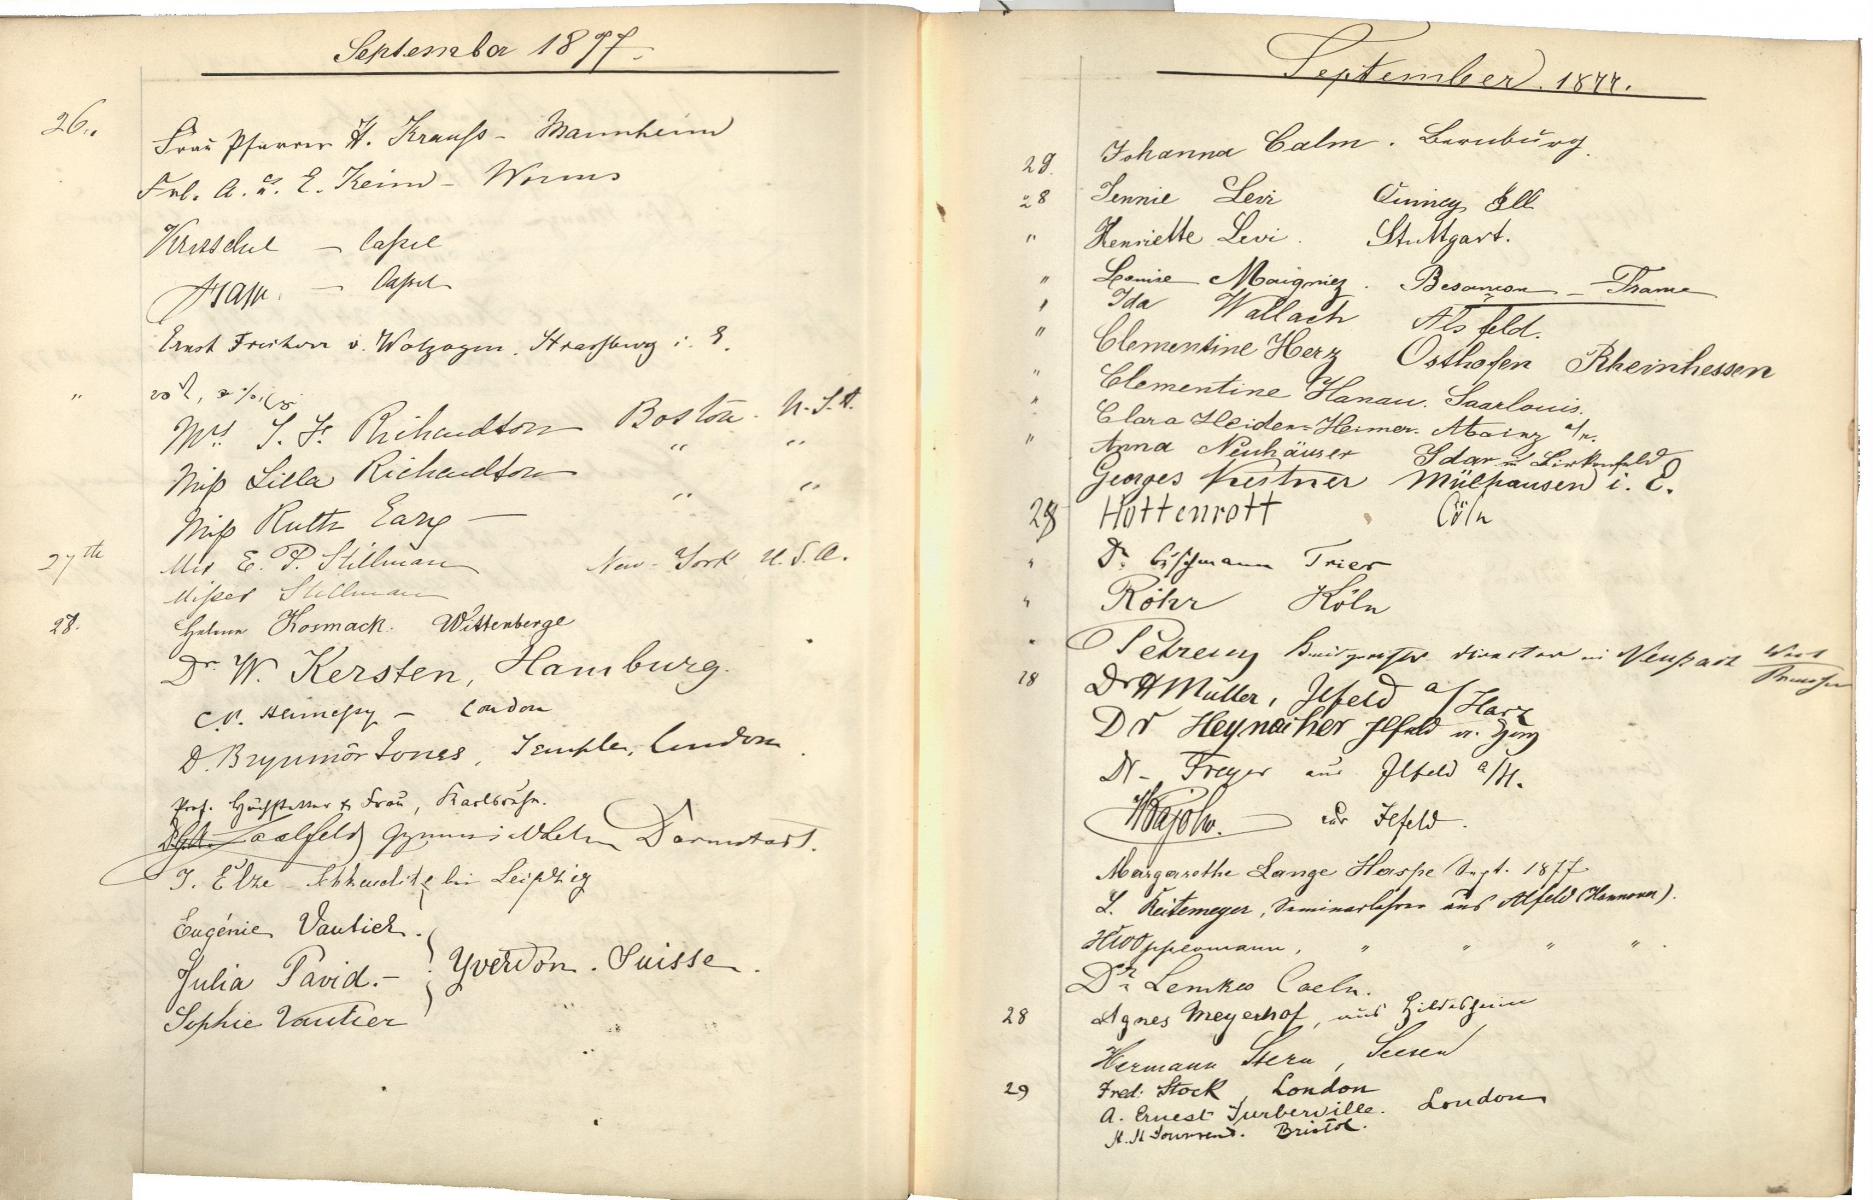 September 1877.
26.
Frau Pfarrer H. Krauß - Mannheim
Frl. A. u. E. Keim - Worms
— Cassel
— Cassel
Ernst Freiherr v. Wolzogen. Strassburg i. E.
"
Mrs S. F. Richardson Boston. U.S.A.
Miss Lilla Richardson " "
Miss Ruth — " "
27th Mrs E. P. Stillman New-York U.S.A.
Misses Stillman
28. Kosmack. Wittenberge
Dr. W. Kersten, Hamburg.
Hennessy — London
D. Brynmôr Jones, Temple, London.
Prof. & Frau, Karlsruhe.
Saalfeld Darmstadt.
J. Elze bei Leipzig
Eugénie Vautier.
Julia Pavid. - Yverdon. Suisse.
Sophie Vautier
September. 1877.
29. Johanna Calm. Bernburg.
28 Jennie Levi Quincy Ill
" Henriette Levi. Stuttgart.
" Louise Maigniez. Besançon - France
" Ida Wallach Alsfeld.
" Clementine Herz Osthofen Rheinhessen
" Clementine Hanau. Saarlouis.
" Clara Heiden-Heimer. Mainz a/R.
" Anna Neuhäuser Idar Birkenfeld
Georges Kestner Mülhausen i. E.
28 Hottenrott Cöln
" Dr. Trier
" Röhr Köln
" Petreny director in West Preussen
28 Dr H Müller, Ilfeld a/Harz
Dr Heynacher Ilfeld a. Harz
Dr Freyer aus Ilfeld a/H.
aus Ilfeld.
Margarethe Lange Haspe Sept. 1877
L. Reitemeyer, Seminarlehrer aus Alfeld (Hannover).
" " " " .
Dr. Lemkes Coeln.
28 Agnes Meyerhof, aus Hildesheim
Hermann Stern, Seesen
29 Fred. Stock, London
A. Ernest Turberville. London
Townsend. Bristol.